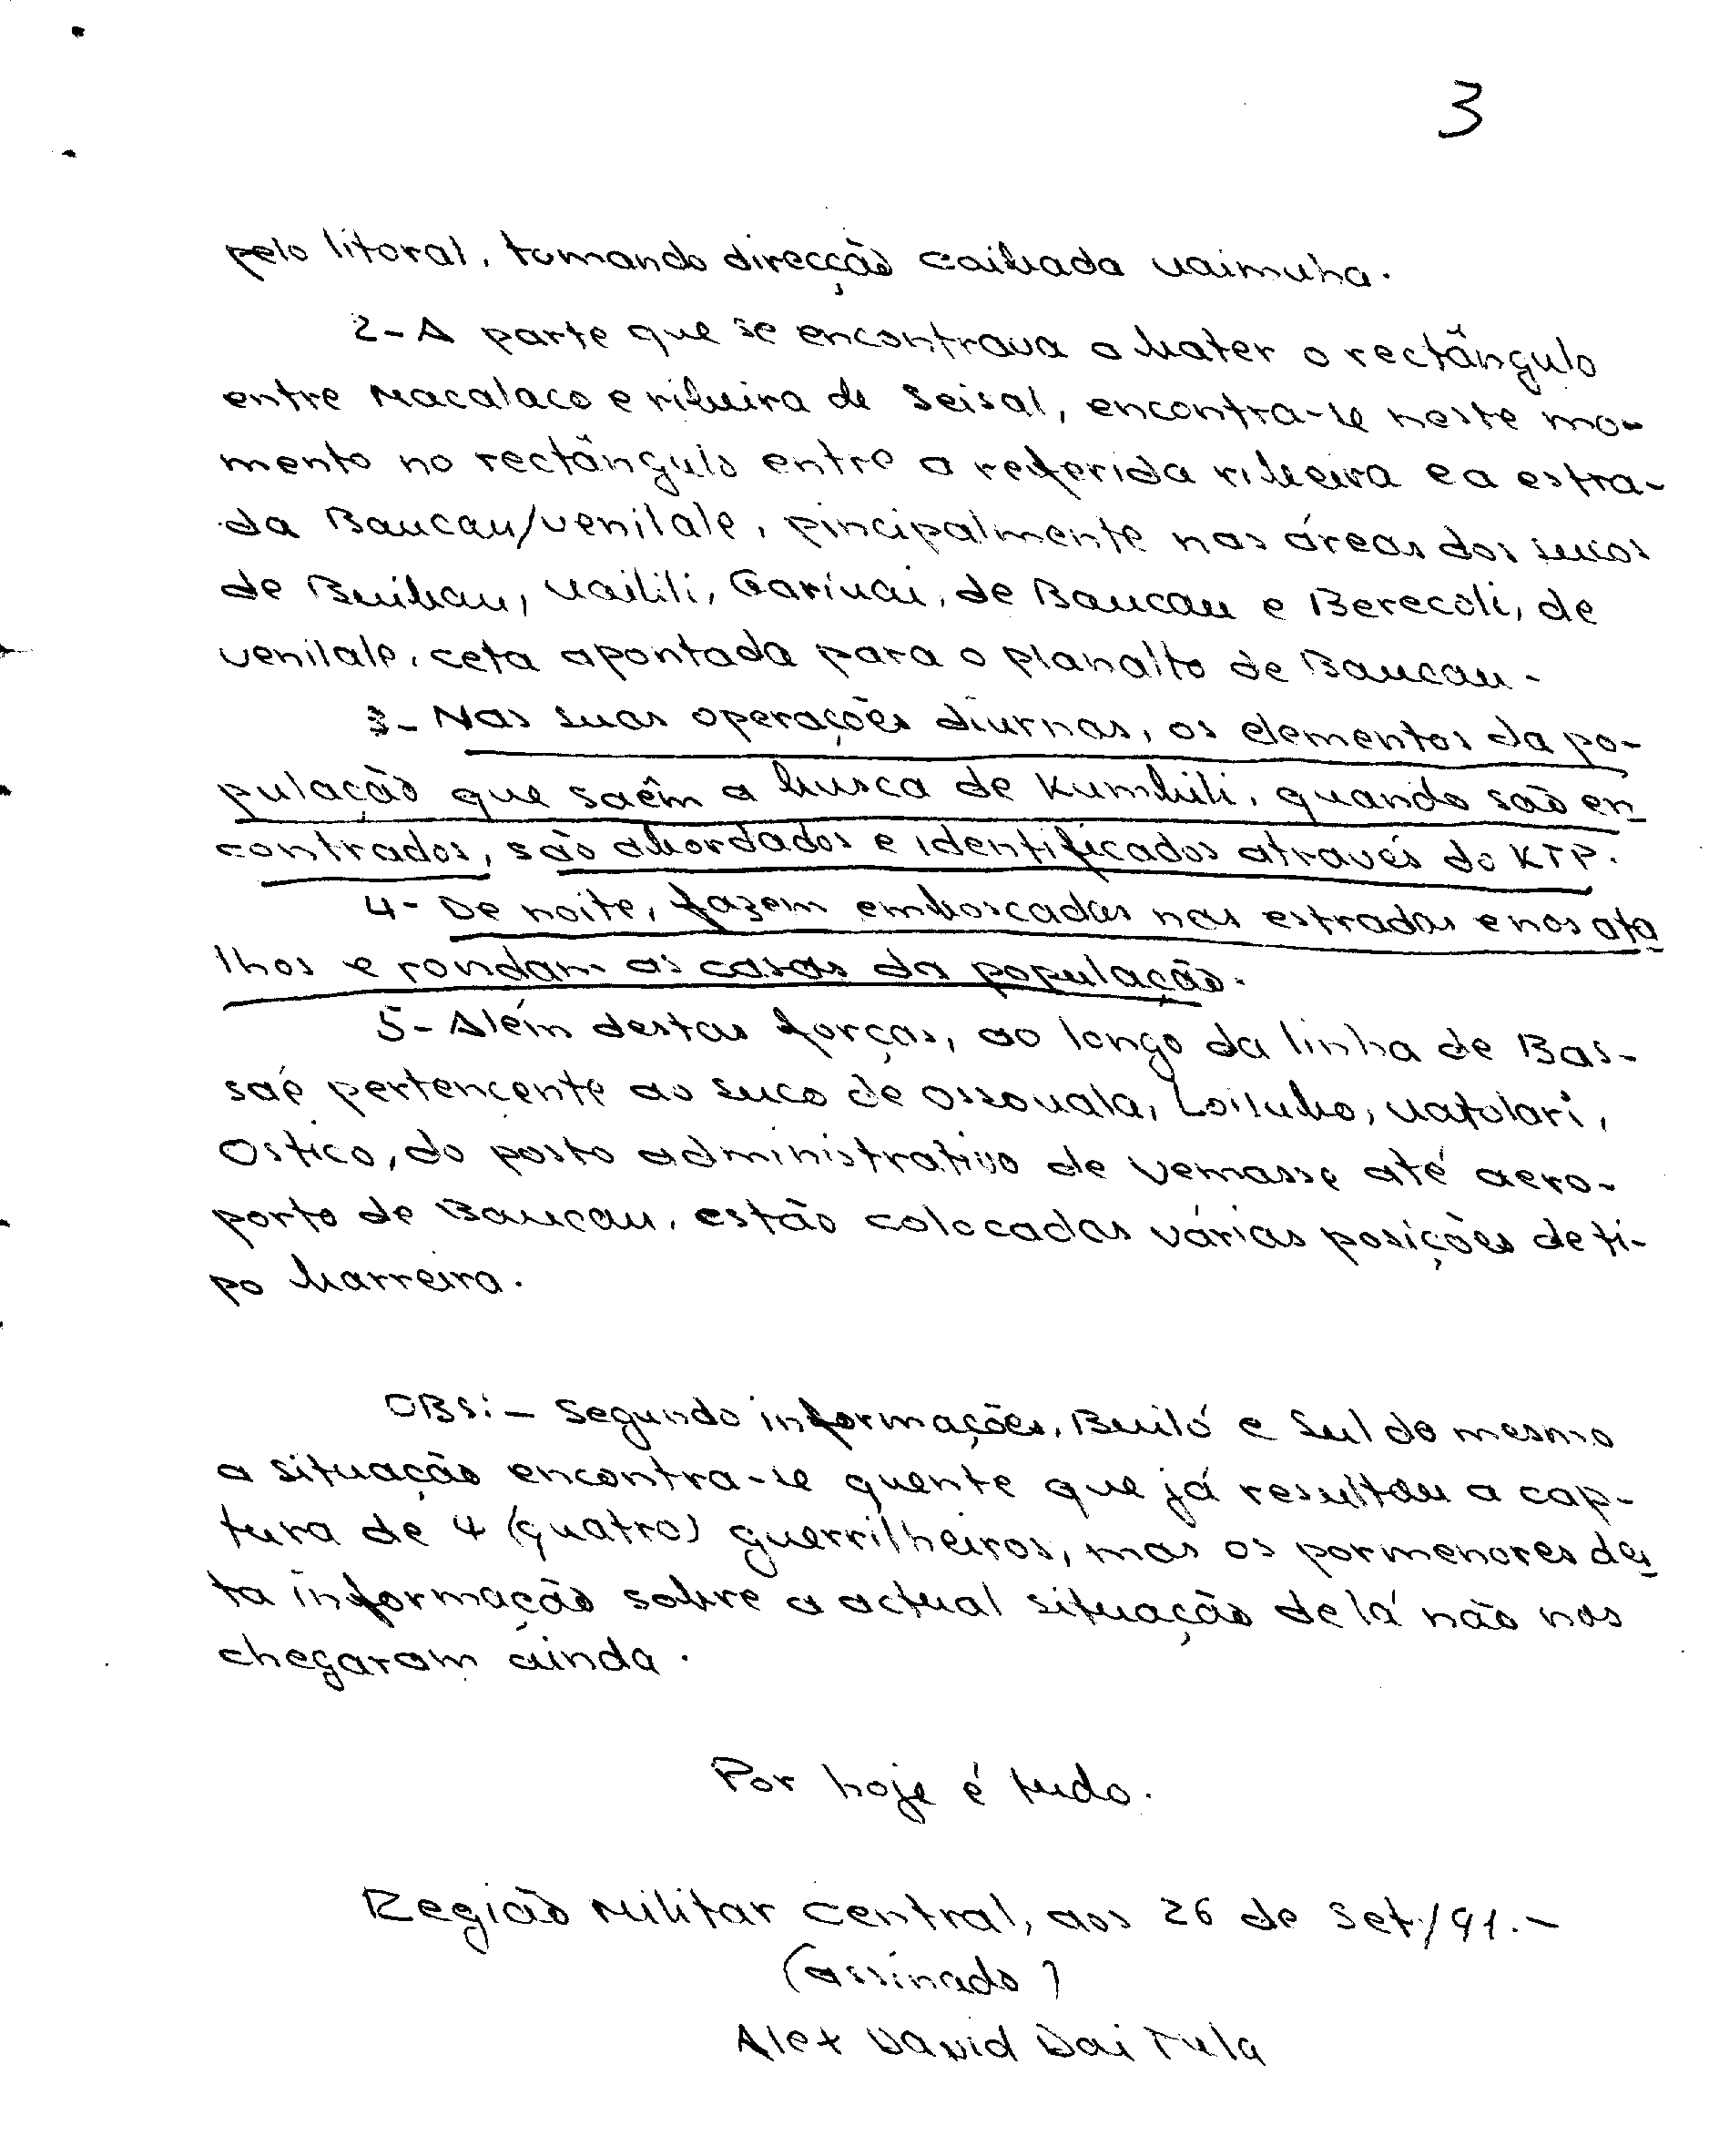 3
pelo litoral, tomando direcção caibada uaimuha.
2- A parte que se encontrava a bater o rectângulo
entre Macalaco e ribeira de Seisal, encontra-se neste mo-
mento no rectângulo entre a referida ribeira e a estra-
da Baucau/venilale, pincipalmente nas áreas dos sucos
de Buibau, uailili, Gariuai, de Baucau e Berecoli, de
venilale, ceta apontada para o planalto de Baucau.
3- Nas suas operações diurnas, os elementos da po-
pulação que saêm a busca de Kumbili, quando são en
contrados, são abordados e identificados através do KTP.
4- De noite, fazem emboscadas nas estradas e nos ata
lhos e rondam as casas da população.
5- Além destas forças, ao longo da linha de Bas-
saé pertencente ao suco de Ossouala, Loilubo, uatolari,
Ostico, do posto administrativo de Vemasse até aero-
porto de Baucau, estão colocadas várias posições de ti-
po barreira.
OBS:- Segundo informações, Builó e Sul do mesmo
a situação encontra-se quente que já resultou a cap-
tura de 4 (quatro) guerrilheiros, mas os pormenores des
ta informação sobre a actual situação de lá não nos
chegaram ainda.
Por hoje é tudo.
Região Militar Central, aos 26 de Set./91.-
(assinado)
Alex David Dai Tula